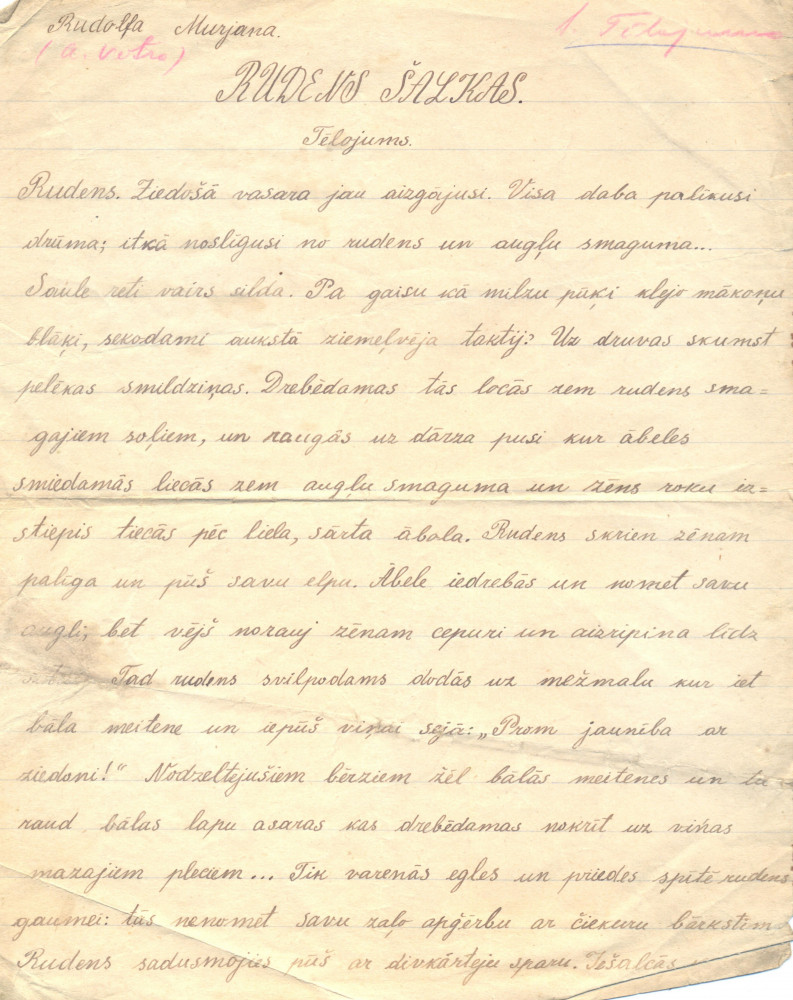 Rudolfa Murjana.
1. Tēlojums
(A. Vētra)
RUDENS ŠALKAS.
Tēlojums.
Rudens. Ziedošā vasara jau aizgājusi. Visa daba palikusi
drūma; itkā noslīgusi no rudens un augļu smaguma...
Saule reti vairs silda. Pa gaisu kā milzu pūķi klejo mākoņu
blāķi, sekodami aukstā ziemeļvēja taktij? Uz druvas skumst
pelēkas smildziņas. Drebēdamas tās locās zem rudens sma=
gajiem soļiem, un raugās uz dārza pusi kur ābeles
smiedamās liecās zem augļu smaguma un zēns roku iz=
stiepis tiecās pēc liela, sārta ābola. Rudens skrien zēnam
palīga un pūš savu elpu. Ābele iedrebās un nomet savu
augli, bet vējš norauj zēnam cepuri un aizripina līdz
Tad rudens svilpodams dodās uz mežmalu kur iet
bāla meitene un iepūš viņai sejā: „Prom jaunība ar
ziedoni!" Nodzeltējušiem bērziem žēl bālās meitenes un tu
raud bālas lapu asaras kas drebēdamas nokrīt uz viņas
mazajiem pleciem... Tik varenās egles un priedes spītē rudens
gaumei: tās nenomet savu zaļo apģērbu ar čiekuru bārkstīm
Rudens sadusmojies pūš ar divkārteju sparu. Iešalcās